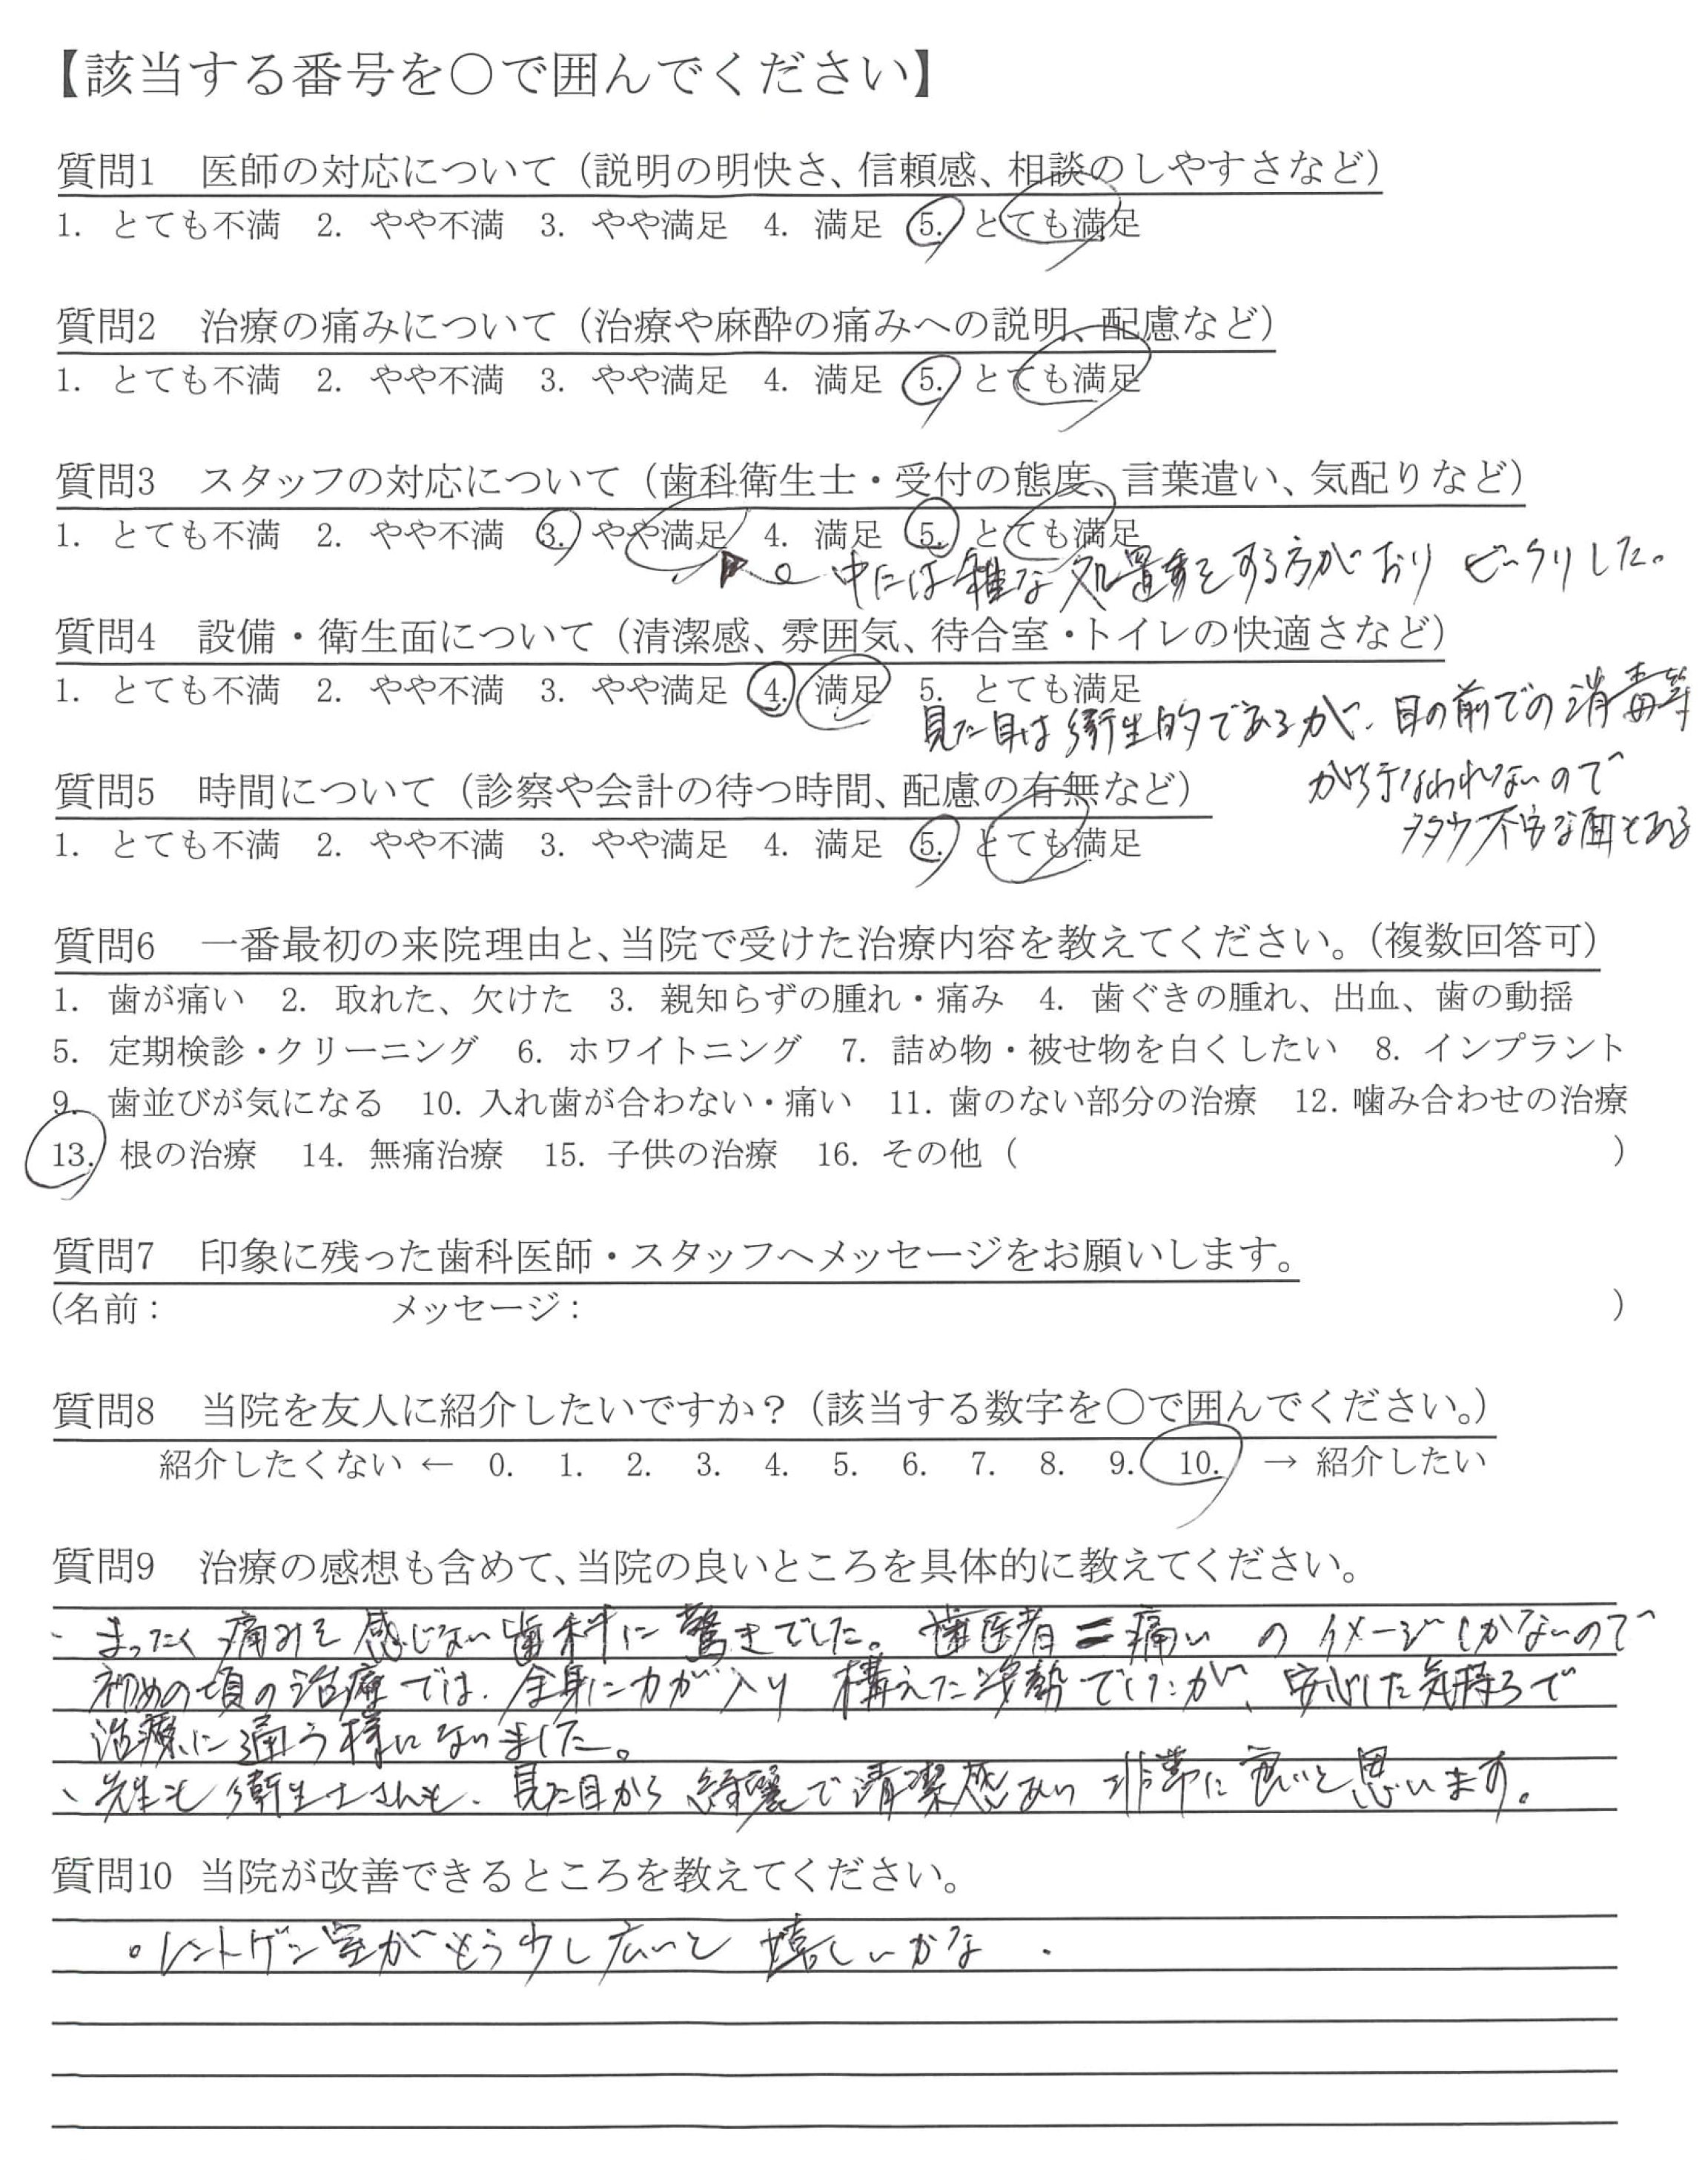 【該当する番号を〇で囲んでください】
質問1 医師の対応について（説明の明快さ、信頼感、相談のしやすさなど）
1. とても不満 2. やや不満 3. やや満足 4. 満足 5. とても満足
質問2 治療の痛みについて（治療や麻酔の痛みへの説明、配慮など）
1. とても不満 2. やや不満 3. やや満足 4. 満足 5. とても満足
質問3 スタッフの対応について（歯科衛生士・受付の態度、言葉遣い、気配りなど）
1. とても不満 2. やや不満 3. やや満足 4. 満足 5. とても満足
中には雑な処置をする方がおり びっくりした。
質問4 設備・衛生面について（清潔感、雰囲気、待合室・トイレの快適さなど）
1. とても不満 2. やや不満 3. やや満足 4. 満足 5. とても満足
見た目は衛生的であるが、目の前での消毒等
が行なわれないので
多少不安な面もある
質問5 時間について（診察や会計の待つ時間、配慮の有無など）
1. とても不満 2. やや不満 3. やや満足 4. 満足 5. とても満足
質問6 一番最初の来院理由と、当院で受けた治療内容を教えてください。（複数回答可）
1. 歯が痛い 2. 取れた、欠けた 3. 親知らずの腫れ・痛み 4. 歯ぐきの腫れ、出血、歯の動揺
5. 定期検診・クリーニング 6. ホワイトニング 7. 詰め物・被せ物を白くしたい 8. インプラント
9. 歯並びが気になる 10. 入れ歯が合わない・痛い 11. 歯のない部分の治療 12. 噛み合わせの治療
13. 根の治療 14. 無痛治療 15. 子供の治療 16. その他（ ）
質問7 印象に残った歯科医師・スタッフへメッセージをお願いします。
（名前： メッセージ： ）
質問8 当院を友人に紹介したいですか？（該当する数字を〇で囲んでください。）
紹介したくない ← 0. 1. 2. 3. 4. 5. 6. 7. 8. 9. 10. → 紹介したい
質問9 治療の感想も含めて、当院の良いところを具体的に教えてください。
、まったく痛みを感じない歯科に驚きでした。歯医者＝痛い のイメージしかないので
初めの頃の治療では、全身に力が入り 構えた姿勢でしたが、安心した気持ちで
治療に通う様になりました。
、先生も衛生士さんも、見た目から綺麗で清潔感あり 非常に良いと思います。
質問10 当院が改善できるところを教えてください。
。レントゲン室がもう少し広いと 嬉しいかな．